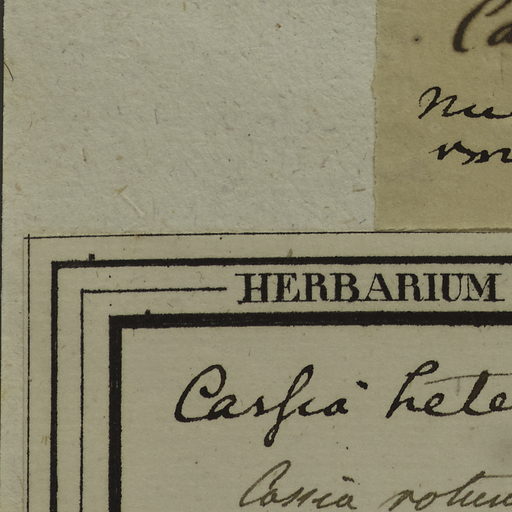 Ca
HERBARIUM
Cassia hete
Cassia rotun